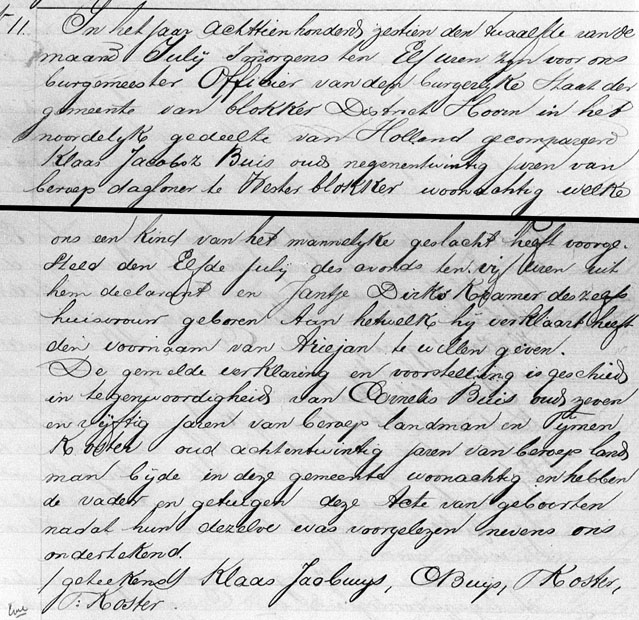 11. In het Jaar achttien honderd zestien den twaalfde van de
maand July smorgens ten Elf uren zyn voor ons
burgemeester Officier van den burgerlyke Staat der
gemeente van blokker District Hoorn in het
noordelyk gedeelte van Holland gecompareerd
Klaas Jacobsz Buis oud negenentwintig jaren van
beroep dagloner te Westerblokker woonachtig welke
ons een kind van het mannelyke geslacht heeft voorge-
steld den Elfde July des avonds ten vyf uren uit
hem declarant en Jantje Dirks Kramer deszelfs
huisvrouw geboren Aan hetwelk hy verklaart heeft
den voornaam van Ariejan te willen geven.
De gemelde verklaring en voorstelling is geschied
in tegenwoordigheid van Cornelis Buis oud zeven
en vyftig jaren van beroep landman en Tymen
Koster oud achtentwintig jaren van beroep land
man byde in deze gemeente woonachtig en hebben
de vader en getuigen deze Acte van geboorten
nadat hun dezelve was voorgelezen nevens ons
ondertekend.
/geteekend/ Klaas Buys, C Buys, Koster,
T: Koster.